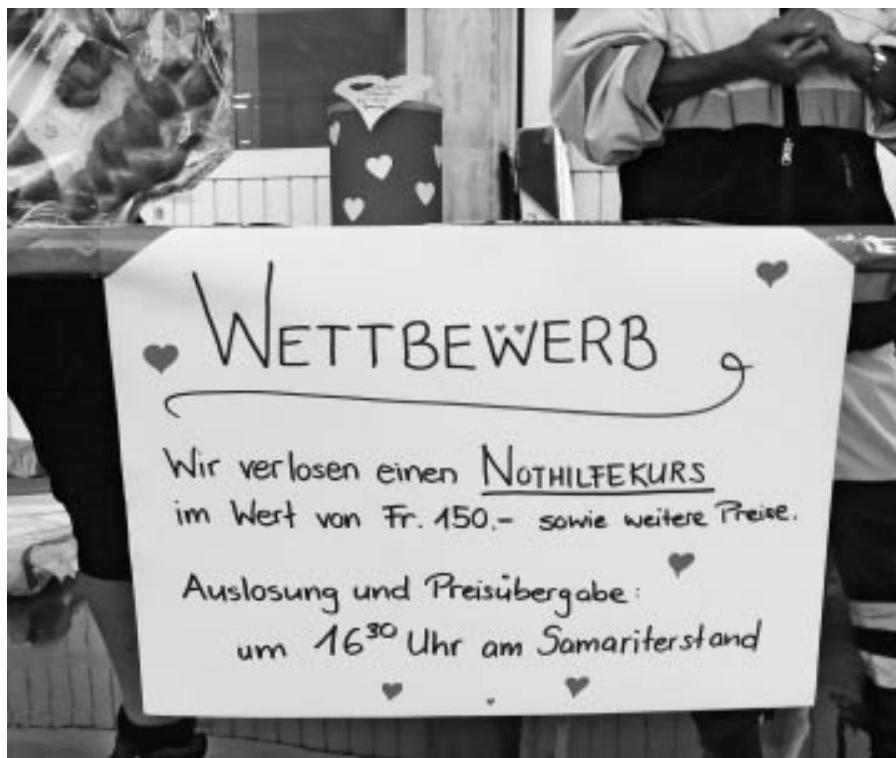 WETTBEWERB
Wir verlosen einen NOTHILFEKURS
im Wert von Fr. 150.- sowie weitere Preise.
Auslosung und Preisübergabe:
um 16³⁰ Uhr am Samariterstand